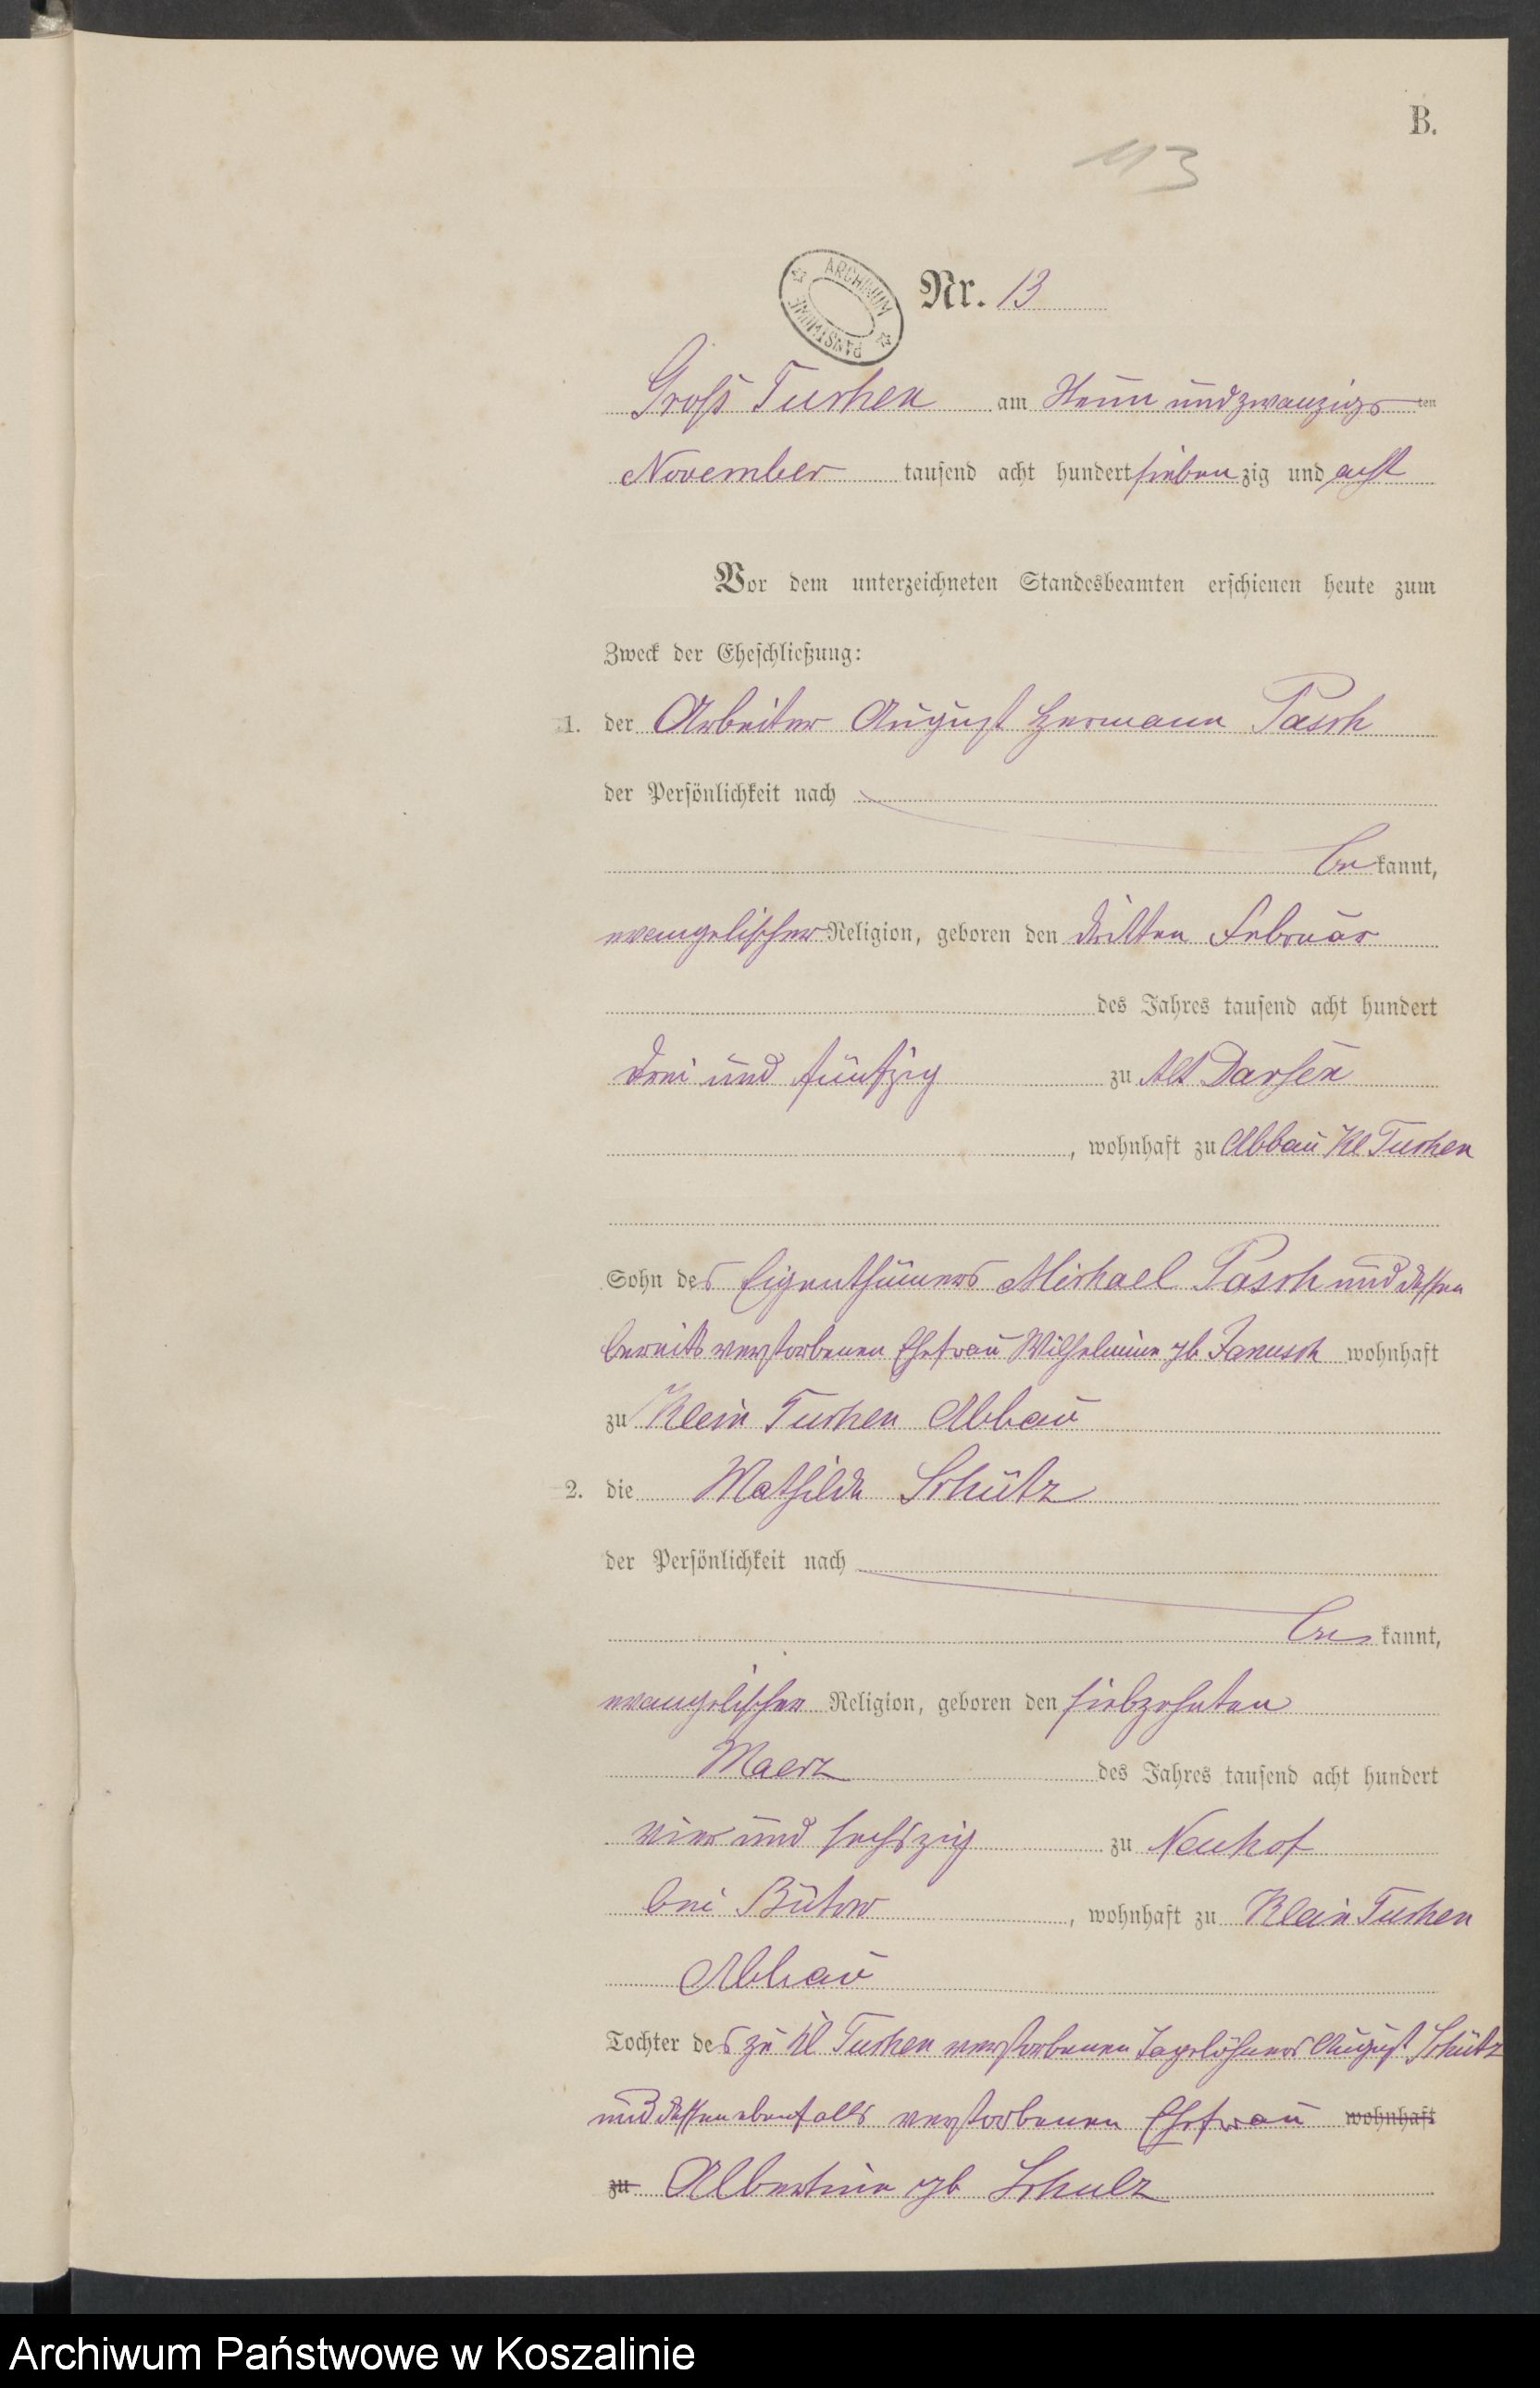 B.
113
ARCHIWUM PAŃSTWOWE
Nr. 13
Groß Tuchen am Neun und zwanzigsten
November tausend acht hundert sieben zig und acht
Vor dem unterzeichneten Standesbeamten erschienen heute zum
Zweck der Eheschließung:
1. der Arbeiter August Hermann Pasch
der Persönlichkeit nach
be kannt,
evangelischer Religion, geboren den dritten Februar
des Jahres tausend acht hundert
drei und fünfzig zu Alt Darsen
, wohnhaft zu Abbau Kl Tuchen
Sohn des Eigenthümers Michael Pasch und dessen
bereits verstorbenen Ehefrau Wilhelmine gb Janusch wohnhaft
zu Klein Tuchen Abbau
2. die Mathilde Schütz
der Persönlichkeit nach
be kannt,
evangelischer Religion, geboren den siebzehnten
Maerz des Jahres tausend acht hundert
vier und sechszig zu Neuhof
bei Bütow , wohnhaft zu Klein Tuchen
Abbau
Tochter des zu Kl Tuchen verstorbenen Tagelöhners August Schütz
und dessen ebenfalls verstorbenen Ehefrau wohnhaft
zu Albertine gb Schulz
Archiwum Państwowe w Koszalinie